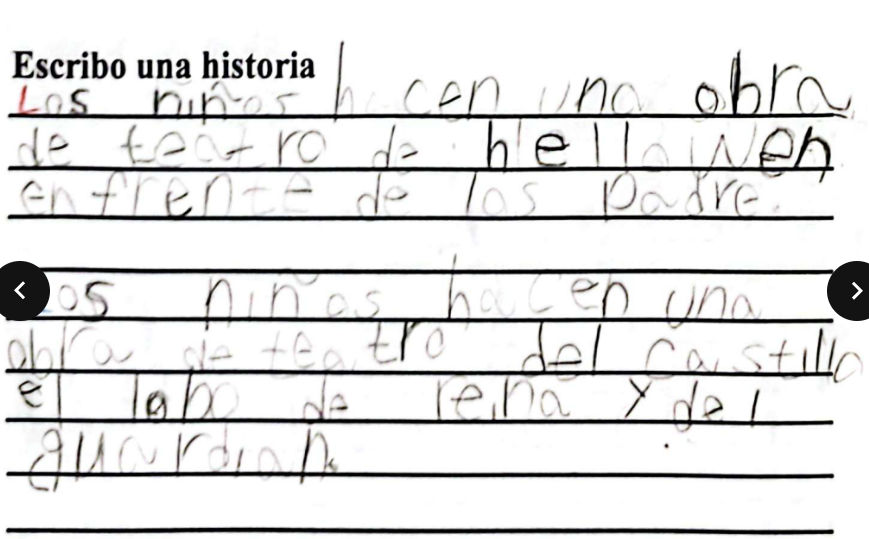 Escribo una historia
Los niños hacen una obra
de teatro de hellowen
enfrente de los padre.
los niños hacen una
obra de teatro del castillo
el lobo de reina y del
guardian.